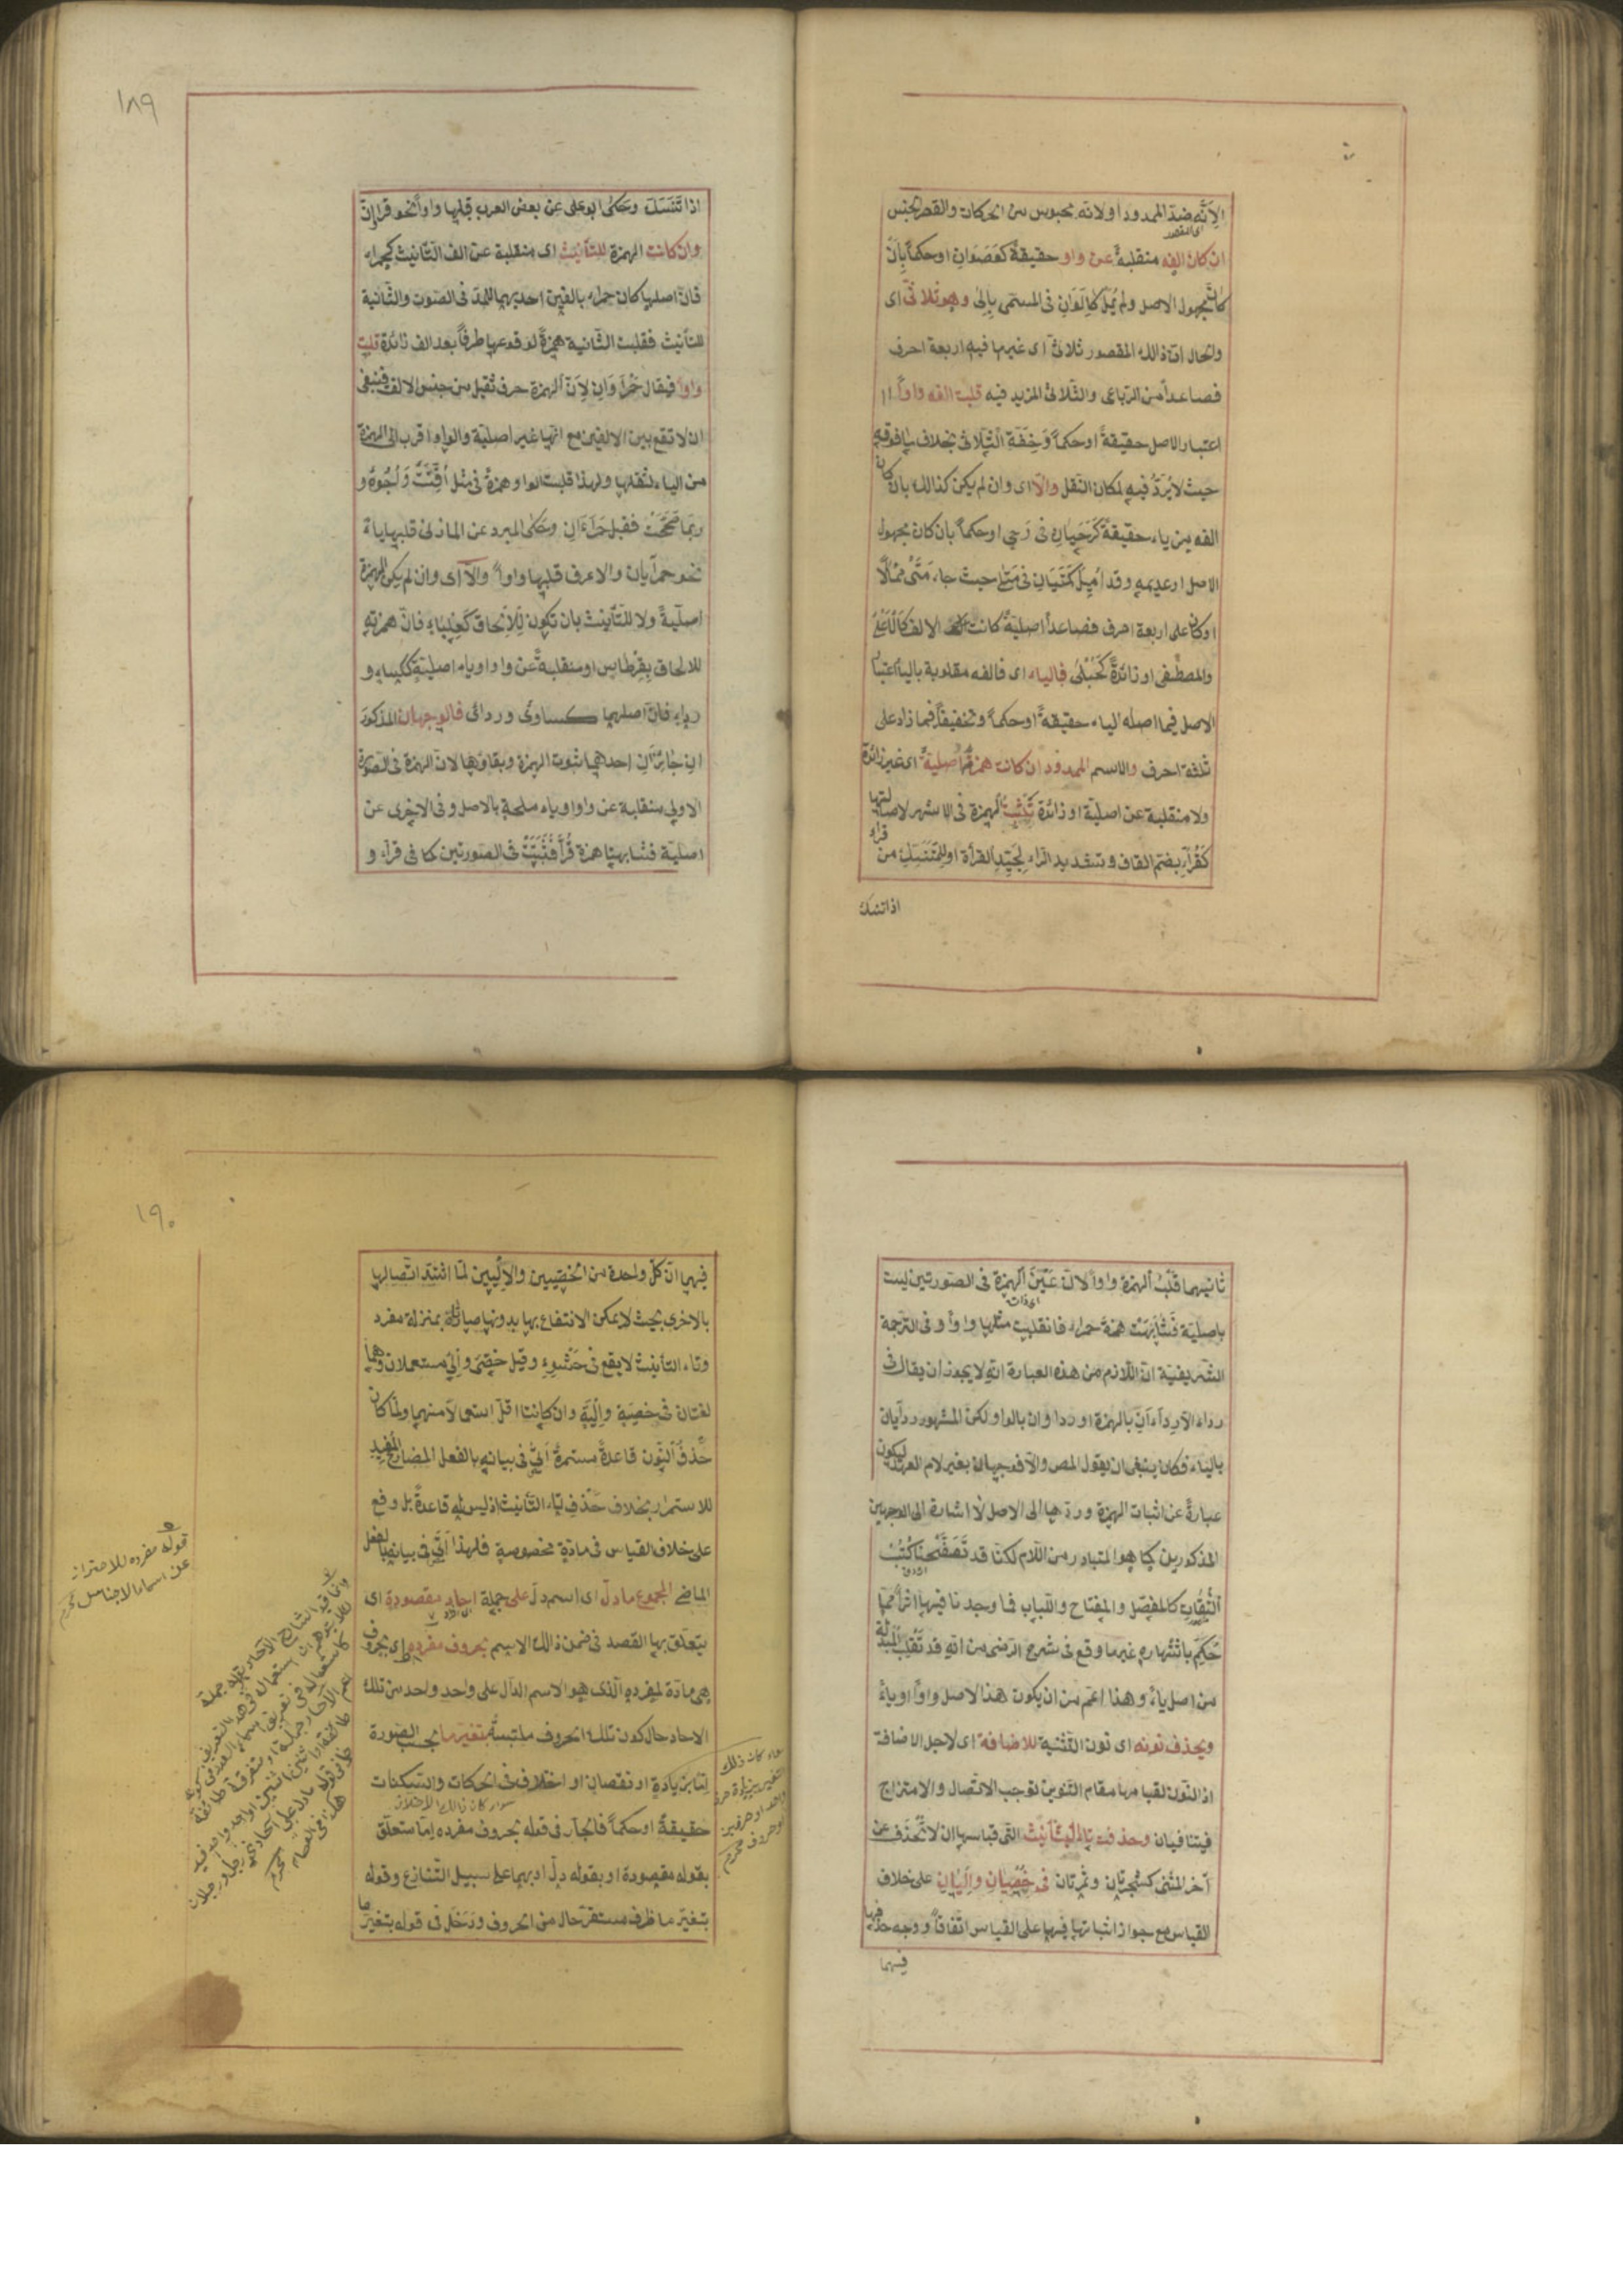 لانه ضد الممدود او لانه محبوس من الحركات والقصر الحبس
اى المقصور
ان كان الفه منقلبة عن واو حقيقة كعصوان او حكما بان
كان مجهول الاصل ولم يمل كالوان فى المسمى بالى وهو ثلاثى اى
والحال ان ذلك المقصور ثلاثى اى غير ما فيه اربعة احرف
فصاعدا من الرباعى والثلاثى المزيد فيه قلبت الفه واوا
اعتبار الاصل حقيقة او حكما وخفة الثلاثى بخلاف ما فوقه
حيث لا يرد فيه لمكان الثقل والا اى وان لم يكن كذلك بان كان
الفه من ياء حقيقة كرحيان فى رحى او حكما بان كان مجهول
الاصل او عديمه وقد اميل كمتيان فى متى حيث جاء متى ممالا
او كان على اربعة احرف فصاعدا اصلية كانت الالف كالاعلى
والمصطفى او زائدة كحبلى فالياء اى فالفه مقلوبة بالياء اعتبار
الاصل فيما اصله الياء حقيقة او حكما وتخفيفا فيما زاد على
ثلثة احرف والاسم الممدود ان كانت همزته اصلية اى غير زائدة
ولا منقلبة عن اصلية او زائدة تثبت الهمزة فى الاشهر لاصالتها
كقراء بضم القاف وتشديد الراء لجيد القراءة او للمتنسك من قراء
اذا تنسك
١٨٩
اذا تنسك وحكى ابو على عن بعض العرب قلبها واوا نحو قراوان
وان كانت الهمزة للتأنيث اى منقلبة عن الف التأنيث كحمراء
فان اصلها كان حمرا بالفين احديهما للمد فى الصوت والثانية
للتأنيث فقلبت الثانية همزة لوقوعها طرفا بعد الف زائدة قلبت
واوا فيقال حمراوان لان الهمزة حرف ثقيل من جنس الالف فينبغى
ان لا تقع بين الالفين مع انها غير اصلية والواو اقرب الى الهمزة
من الياء لثقلها ولهذا قلبت الواو همزة فى مثل اقتت واجوه و
ربما صححت فقيل حمراءان وحكى المبرد عن المازنى قلبها ياء
نحو حمرايان والاعرف قلبها واوا والا اى وان لم يكن الهمزة
اصلية ولا للتأنيث بان تكون للالحاق كعلباء فان همزته
للالحاق بقرطاس او منقلبة عن واو او ياء اصلية ككساء و
رداء فان اصلهما كساو وردائ فالوجهان المذكور
ان جائزان احدهما ثبوت الهمزة وبقاؤها لان الهمزة فى الصورة
الاولى منقلبة عن واو او ياء ملحقة بالاصل وفى الاخرى عن
اصلية فشابهتا همزة قراء فثبتت فى الصورتين كما فى قراء و
ثانيهما قلب الهمزة واوا لان عين الهمزة فى الصورتين ليست
اى ذات
باصلية فشابهت همزة حمراء فانقلبت مثلها واوا وفى الترجمة
الشريفية ان اللازم من هذه العبارة انه لا يجوز ان يقال فى
رداء الا رداءان بالهمزة او رداوان بالواو لكن المشهور ردايان
بالياء فكان ينبغى ان يقول المص والا فوجهان بغير لام العهد ليكون
عبارة عن اثبات الهمزة وردها الى الاصل لا اشارة الى الوجهين
المذكورين كما هو المتبادر من اللام لكنا قد تصفحنا كتب
الثقات كالمفصل والمفتاح واللباب فما وجدنا فيها اثرا مما
حكم باشتهاره غير ما وقع فى شرح الرضى من انه قد تقلب المبدلة
من اصل ياء وهذا اعم من ان يكون هذا الاصل واوا او ياء
ويحذف نونه اى نون التثنية للاضافة اى لاجل الاضافة
اذ النون لقيامها مقام التنوين توجب الانفصال والامتزاج
فيتنافيان وحذفت تاء التأنيث التى قياسها ان لا تحذف عن
آخر المثنى كشجرتان وثمرتان فى خصيان واليان على خلاف
القياس مع جواز اثباتها فيها على القياس اتفاقا ووجه حذفها
فيهما
١٩٠
فيهما ان كل واحدة من الخصيين والاليين لما اشتد اتصالها
بالاخرى بحيث لا يمكن الانتفاع بها بدونها صارتا بمنزلة مفرد
وتاء التأنيث لا يقع فى حشوه وقيل خصى والى مستعملان وهما
لغتان فى خصية والية وان كانتا اقل استعمالا منهما ولما كان
حذف النون قاعدة مستمرة اتى فى بيانه بالفعل المضارع المفيد
للاستمرار بخلاف حذف تاء التأنيث اذ ليس له قاعدة بل وقع
على خلاف القياس فى مادة مخصوصة فلهذا اتى فى بيانه بالفعل
الماضى المجموع ما دل اى اسم دل على جملة احاد مقصودة اى
يتعلق بها القصد فى ضمن ذلك الاسم بحروف مفرده اى بحروف
هى مادة لمفرده الذى هو الاسم الدال على واحد واحد من تلك
الاحاد حال كون تلك الحروف ملتبسة بتغير ما بحسب الصورة
اما بزيادة او نقصان او اختلاف فى الحركات والسكنات
سواء كان ذلك الاختلاف
حقيقة او حكما فالجار فى قوله بحروف مفرده اما متعلق
بقوله مقصودة او بقوله دل او بهما على سبيل التنازع وقوله
بتغير ما ظرف مستقر حال من الحروف ودخل فى قوله بتغير ما
قوله مفرده للاحتراز
عن اسماء الاجناس محرم
سواء كان ذلك
التغير بزيادة حرف
واحد او حرفين
او حروف محرم